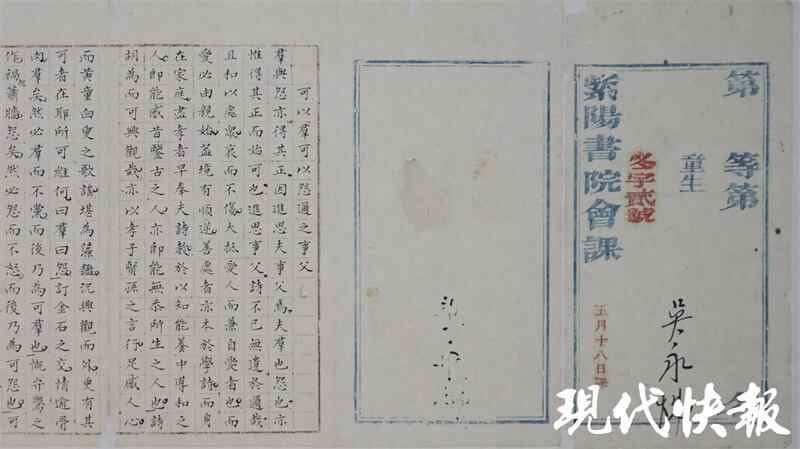 第 等第
童生
字貳號
紫陽書院會課
五月十八日課
吳永
可以羣可以怨邇之事父
羣與怨亦得其正因進思夫事父焉夫羣也怨也亦
惟得其正而始可也進思事父詩不已無遺於邇哉
且和以處眾哀而不傷大哉愛人而兼自愛者也而
愛必由親始蓋境有順逆善處者亦本於學詩而身
在家庭盡孝者早奉夫詩教於以知能養中導和之
人卽能感昔鑒古之人亦卽能無忝所生之人也詩
胡為而可興觀哉亦以孝子賢孫之言行足感人心
而黃童白叟之歌謠堪為藻鑑況興觀而外更有其
可者在耶所可維何曰羣曰怨訂金石之交情逾骨
肉羣矣然必羣而不黨而後乃為可羣也慨之
作禍起蕭牆怨矣然必怨而不怒而後乃為可怨也可
現代快報